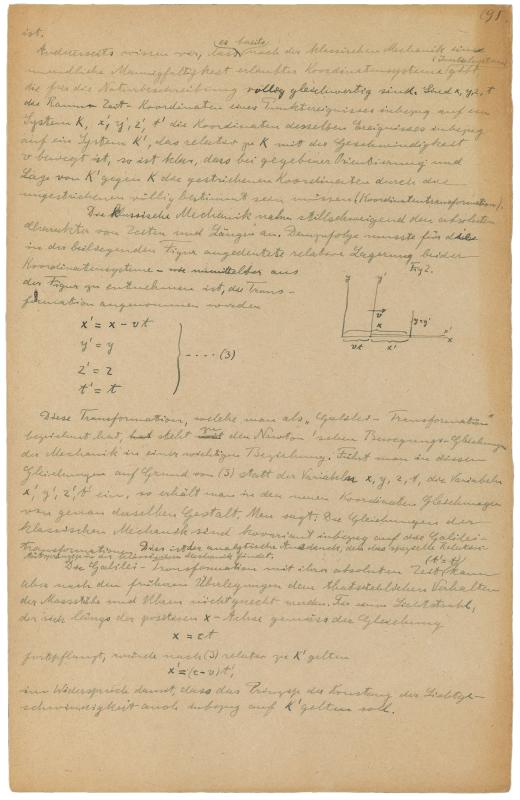 (98
ist.
Andrerseits wissen wir, dass es nach der klassischen Mechanik eine
unendliche Mannigfaltigkeit erlaubter Koordinatensysteme gibt
die für die Naturbeschreibung völlig gleichwertig sind. Sind x, y, z, t
die Raum-Zeit-Koordinaten eines Punktereignisses inbezug auf ein
System K, x', y', z', t' die Koordinaten desselben Ereignisses inbezug
auf ein System K', das relativ zu K mit der Geschwindigkeit
v bewegt ist, so ist klar, dass bei gegebener Orientierung und
Lage von K' gegen K die gestrichenen Koordinaten durch die
ungestrichenen völlig bestimmt sein müssen (Koordinatentransformation).
Die klassische Mechanik nahm stillschweigend den absoluten
Charakter von Zeiten und Längen an. Demzufolge musste für die
in der beiliegenden Figur angedeutete relative Lagerung beider
Koordinatensysteme - wie unmittelbar aus
der Figur zu entnehmen ist, die Trans-
formation angenommen werden
Fig 2.
y y'
v
x
y=y'
x'
x
vt x'
x' = x - vt
y' = y
z' = z
t' = t
.... (3)
Diese Transformation, welche man als „Galilei-Transformation"
bezeichnet hat, steht zu den Newton'schen Bewegungs-Gleichungen
der Mechanik in einer wichtigen Beziehung. Führt man in diesen
Gleichungen auf Grund von (3) statt der Variabeln x, y, z, t, die Variabeln
x', y', z', t' ein, so erhält man in den neuen Koordinaten Gleichungen
von genau derselben Gestalt. Man sagt: Die Gleichungen der
klassischen Mechanik sind kovariant inbezug auf die Galilei-
Transformation. Dies ist der analytische Ausdruck, den das spezielle Relativi-
tätsprinzip in der klassischen Mechanik findet.
(t' = t)
Die Galilei-Transformation mit ihrer absoluten Zeit kann
aber nach den früheren Überlegungen dem thatsächlichen Verhalten
der Massstäbe und Uhren nicht gerecht werden. Für einen Lichtstrahl,
der sich längs der positiven x-Achse gemäss der Gleichung
x = ct
fortpflanzt, würde nach (3) relativ zu K' gelten
x' = (c-v)t',
im Widerspruch damit, dass das Prinzip der Konstanz der Lichtge-
schwindigkeit auch inbezug auf K' gelten soll.